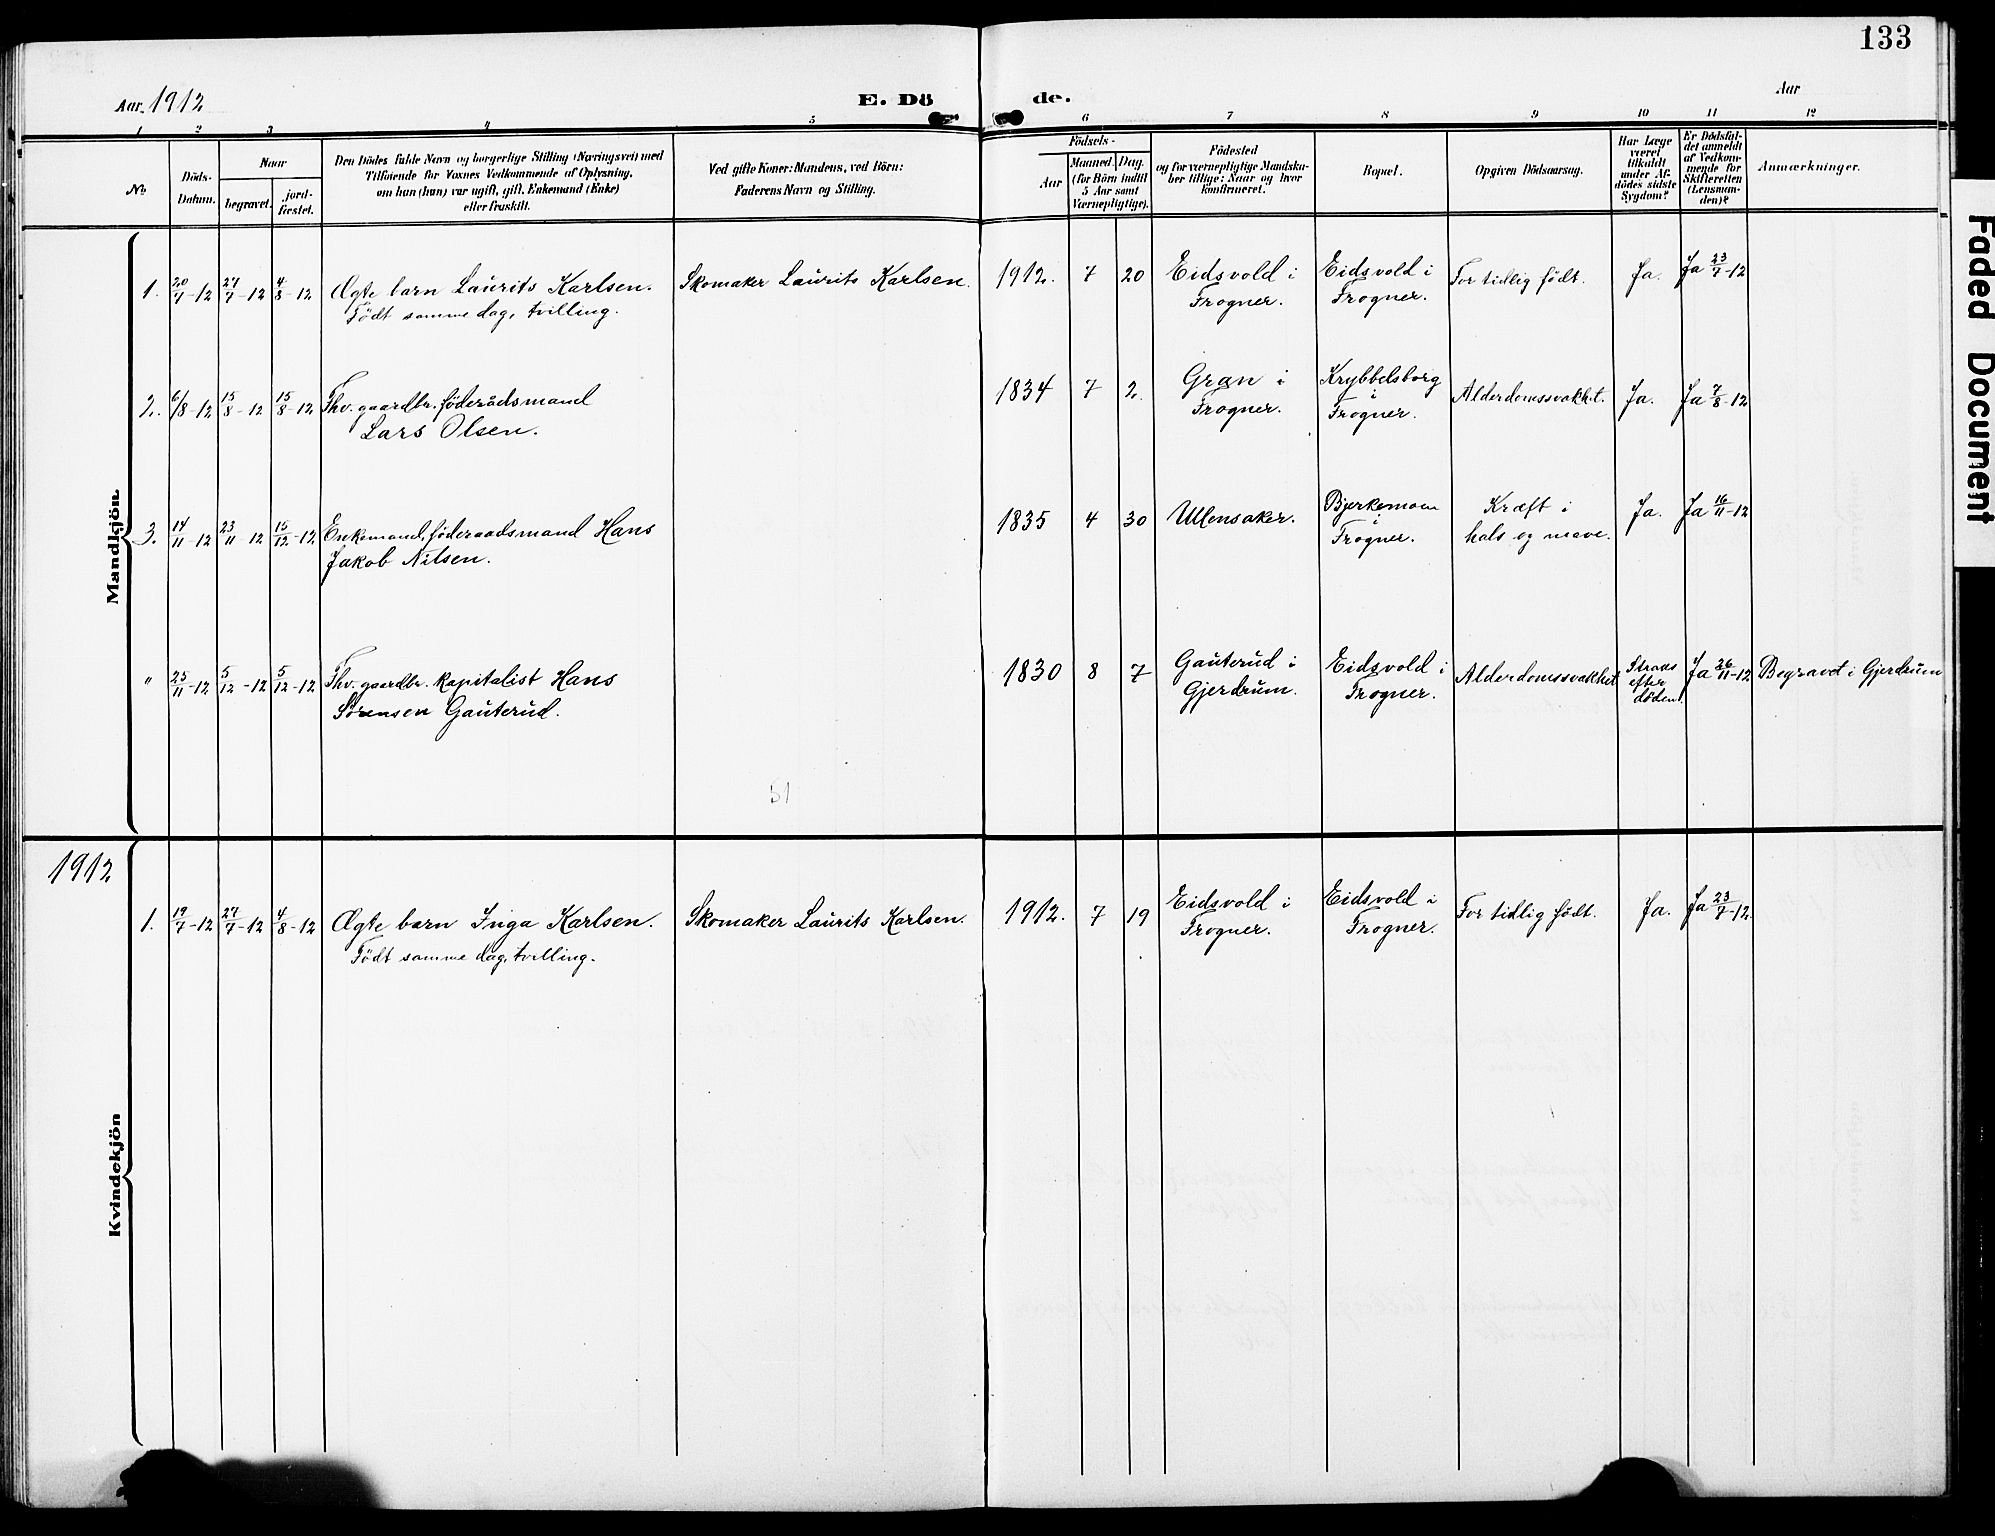 133
Aar 1912 E. Dö de. Aar
1 2 3 4 5 6 7 8 9 10 11 12
No
Döds-
Datum.
Naar
begravet.
jord-
fæstet.
Den Dödes fulde Navn og borgerlige Stilling (Næringsvei) med
Tilföiende for Voxnes Vedkommende af Oplysning,
om han (hun) var ugift, gift, Enkemand (Enke)
eller fraskilt.
Ved gifte Koner: Mandens, ved Börn:
Faderens Navn og Stilling.
Födsels-
Aar
Maaned. Dag.
(for Börn indtil
5 Aar samt
Værnepligtige).
Födested
og for værnepligtige Mandska-
ber tillige: Naar og hvor
konfirmeret.
Bopæl.
Opgiven Dödsaarsag.
Har Læge
været
tilkaldt
under Af-
dödes sidste
Sygdom?
Er Dödsfal-
det anmeldt
af Vedkom-
mende for
Skifteretten
(Lensman-
den)?
Anmærkninger.
Mandkjön
1. 20/7-12 27/7-12 4/8-12 Ægte barn Laurits Karlsen. Skomaker Laurits Karlsen. 1912. 7 20 Eidsvold i Eidsvold i For tidlig født. Ja. Ja 23/7-12
Født samme dag, tvilling. Frogner. Frogner.
2. 6/8-12 15/8-12 15/8-12 Fhv. gaardbr. føderådsmand 1834 7 2. Gran i Krybbelsborg Alderdomssvakhet. Ja. Ja 7/8-12
Lars Olsen. Frogner. i Frogner.
3. 14/11-12 23/11-12 15/12-12 Enkemand, føderaadsmand Hans 1835 4 30 Ullensaker. Bjerkemoen Kræft i Ja. Ja 16/11-12
Jakob Nilsen. i Frogner. hals og mave.
" 25/11-12 5/12-12 5/12-12 Fhv. gaardbr. kapitalist Hans 1830 8 7 Gauterud i Eidsvold i Alderdomssvakhet Straks Ja 26/11-12 Begravet i Gjerdrum
Sørensen Gauterud. Gjerdrum. Frogner. efter
døden.
51
1912
Kvindekjön
1. 19/7-12 27/7-12 4/8-12 Ægte barn Inga Karlsen. Skomaker Laurits Karlsen. 1912. 7 19 Eidsvold i Eidsvold i For tidlig født. Ja. Ja 23/7-12.
Født samme dag, tvilling. Frogner. Frogner.
Faded Document